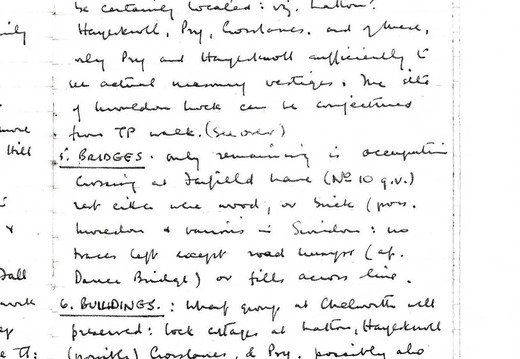 be certainly located: viz. Latton?
Hayesknoll, Pry, Crosslanes. and of these,
only Pry and Hayesknoll sufficiently to
see actual masonry vestiges. The site
of Moredon Lock can be conjectured
from TP walk. (See over)
5. BRIDGES. only remaining is occupation
crossing at Fairfield Lane (No 10 q.v.)
rest either were wood, or brick (poss.
Moredon & various in Swindon: no
traces left except road humps (cf.
Dance Bridge) or fills across line.
6. BUILDINGS.: wharf group at Chelworth well
preserved: lock cottages at Latton, Hayesknoll
(possibly) Crosslanes, & Pry. possibly also
more
Hill
&